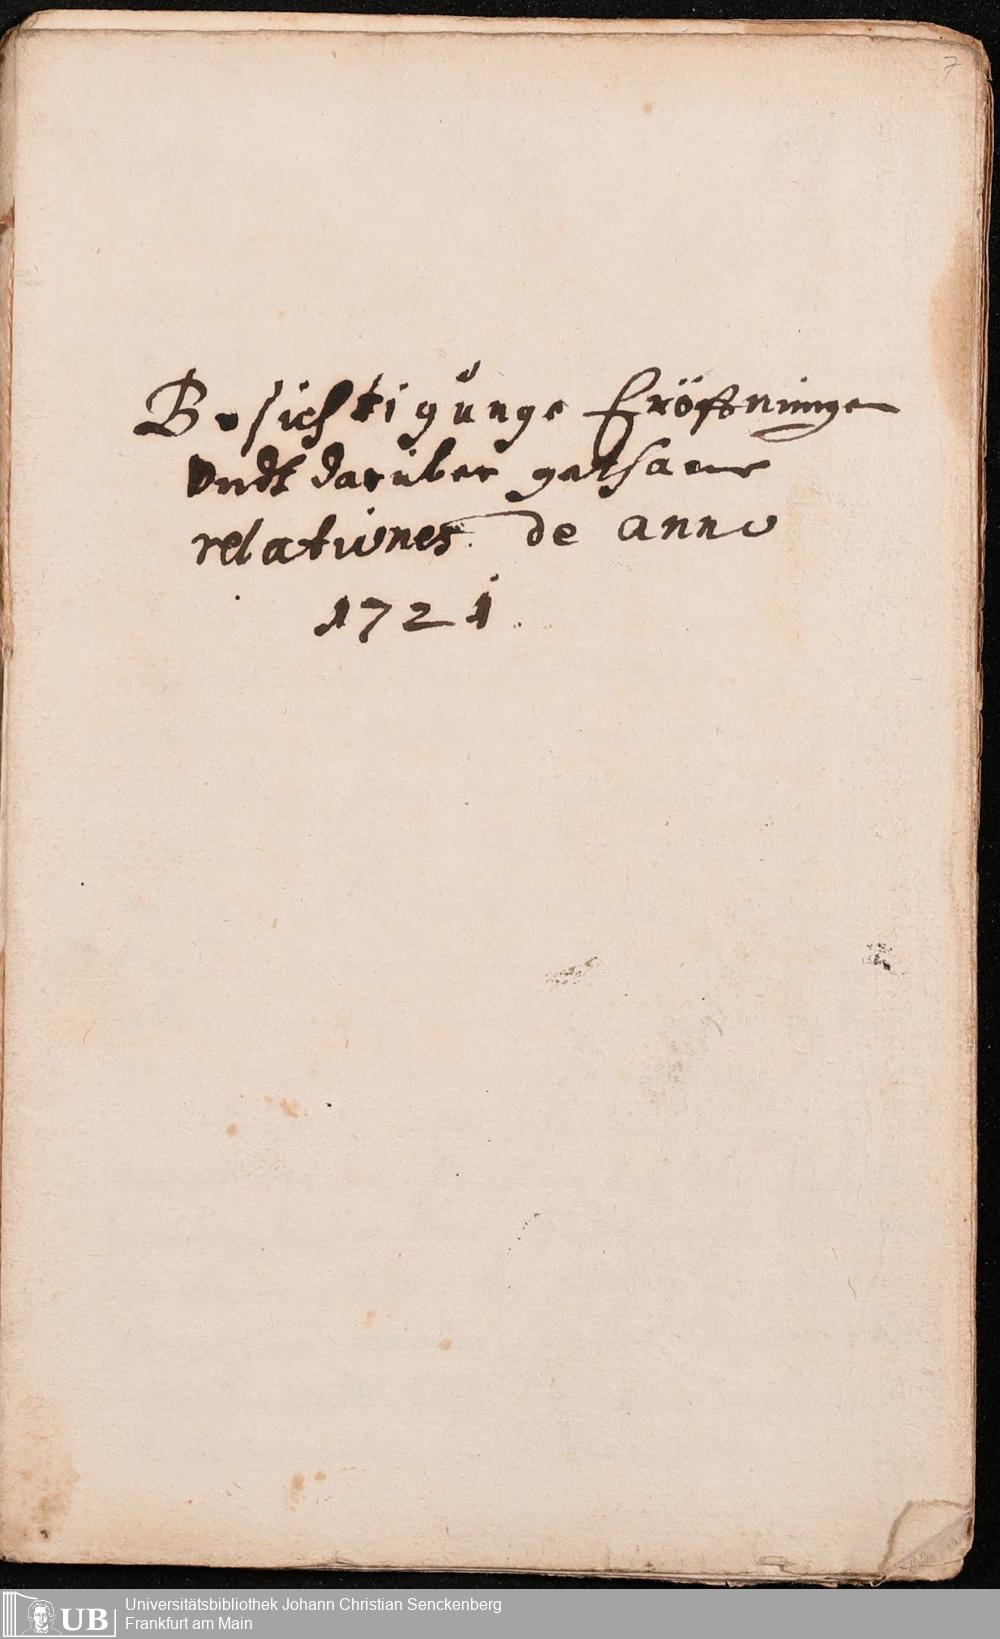 7
Besichtigunge Eröffnunge
Vndt darüber gethane
relationes de anno
1721.
UB Universitätsbibliothek Johann Christian Senckenberg
Frankfurt am Main